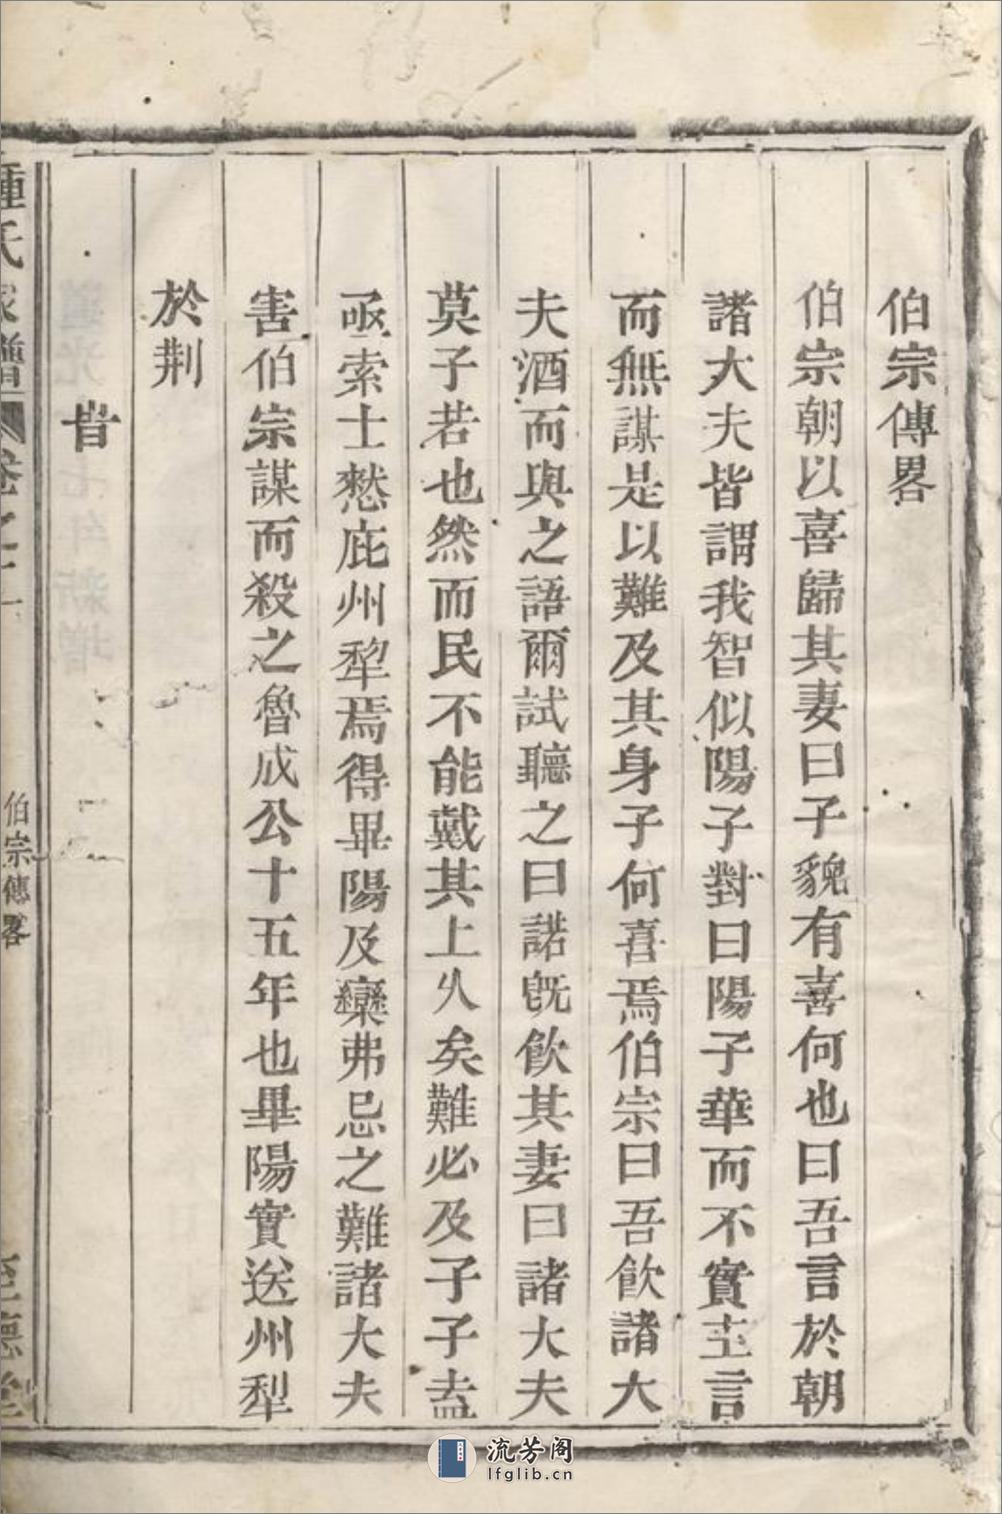 伯宗傳畧
伯宗朝以喜歸其妻曰子貌有喜何也曰吾言於朝
諸大夫皆謂我智似陽子對曰陽子華而不實主言
而無謀是以難及其身子何喜焉伯宗曰吾飲諸大
夫酒而與之語爾試聽之曰諾旣飲其妻曰諸大夫
莫子若也然而民不能戴其上久矣難必及子子盍
亟索士憖庇州犂焉得畢陽及欒弗忌之難諸大夫
害伯宗謀而殺之魯成公十五年也畢陽實送州犁
於荆
昔
鍾氏家譜 卷之 伯宗傳畧 至德堂
流芳阁
lfglib.cn